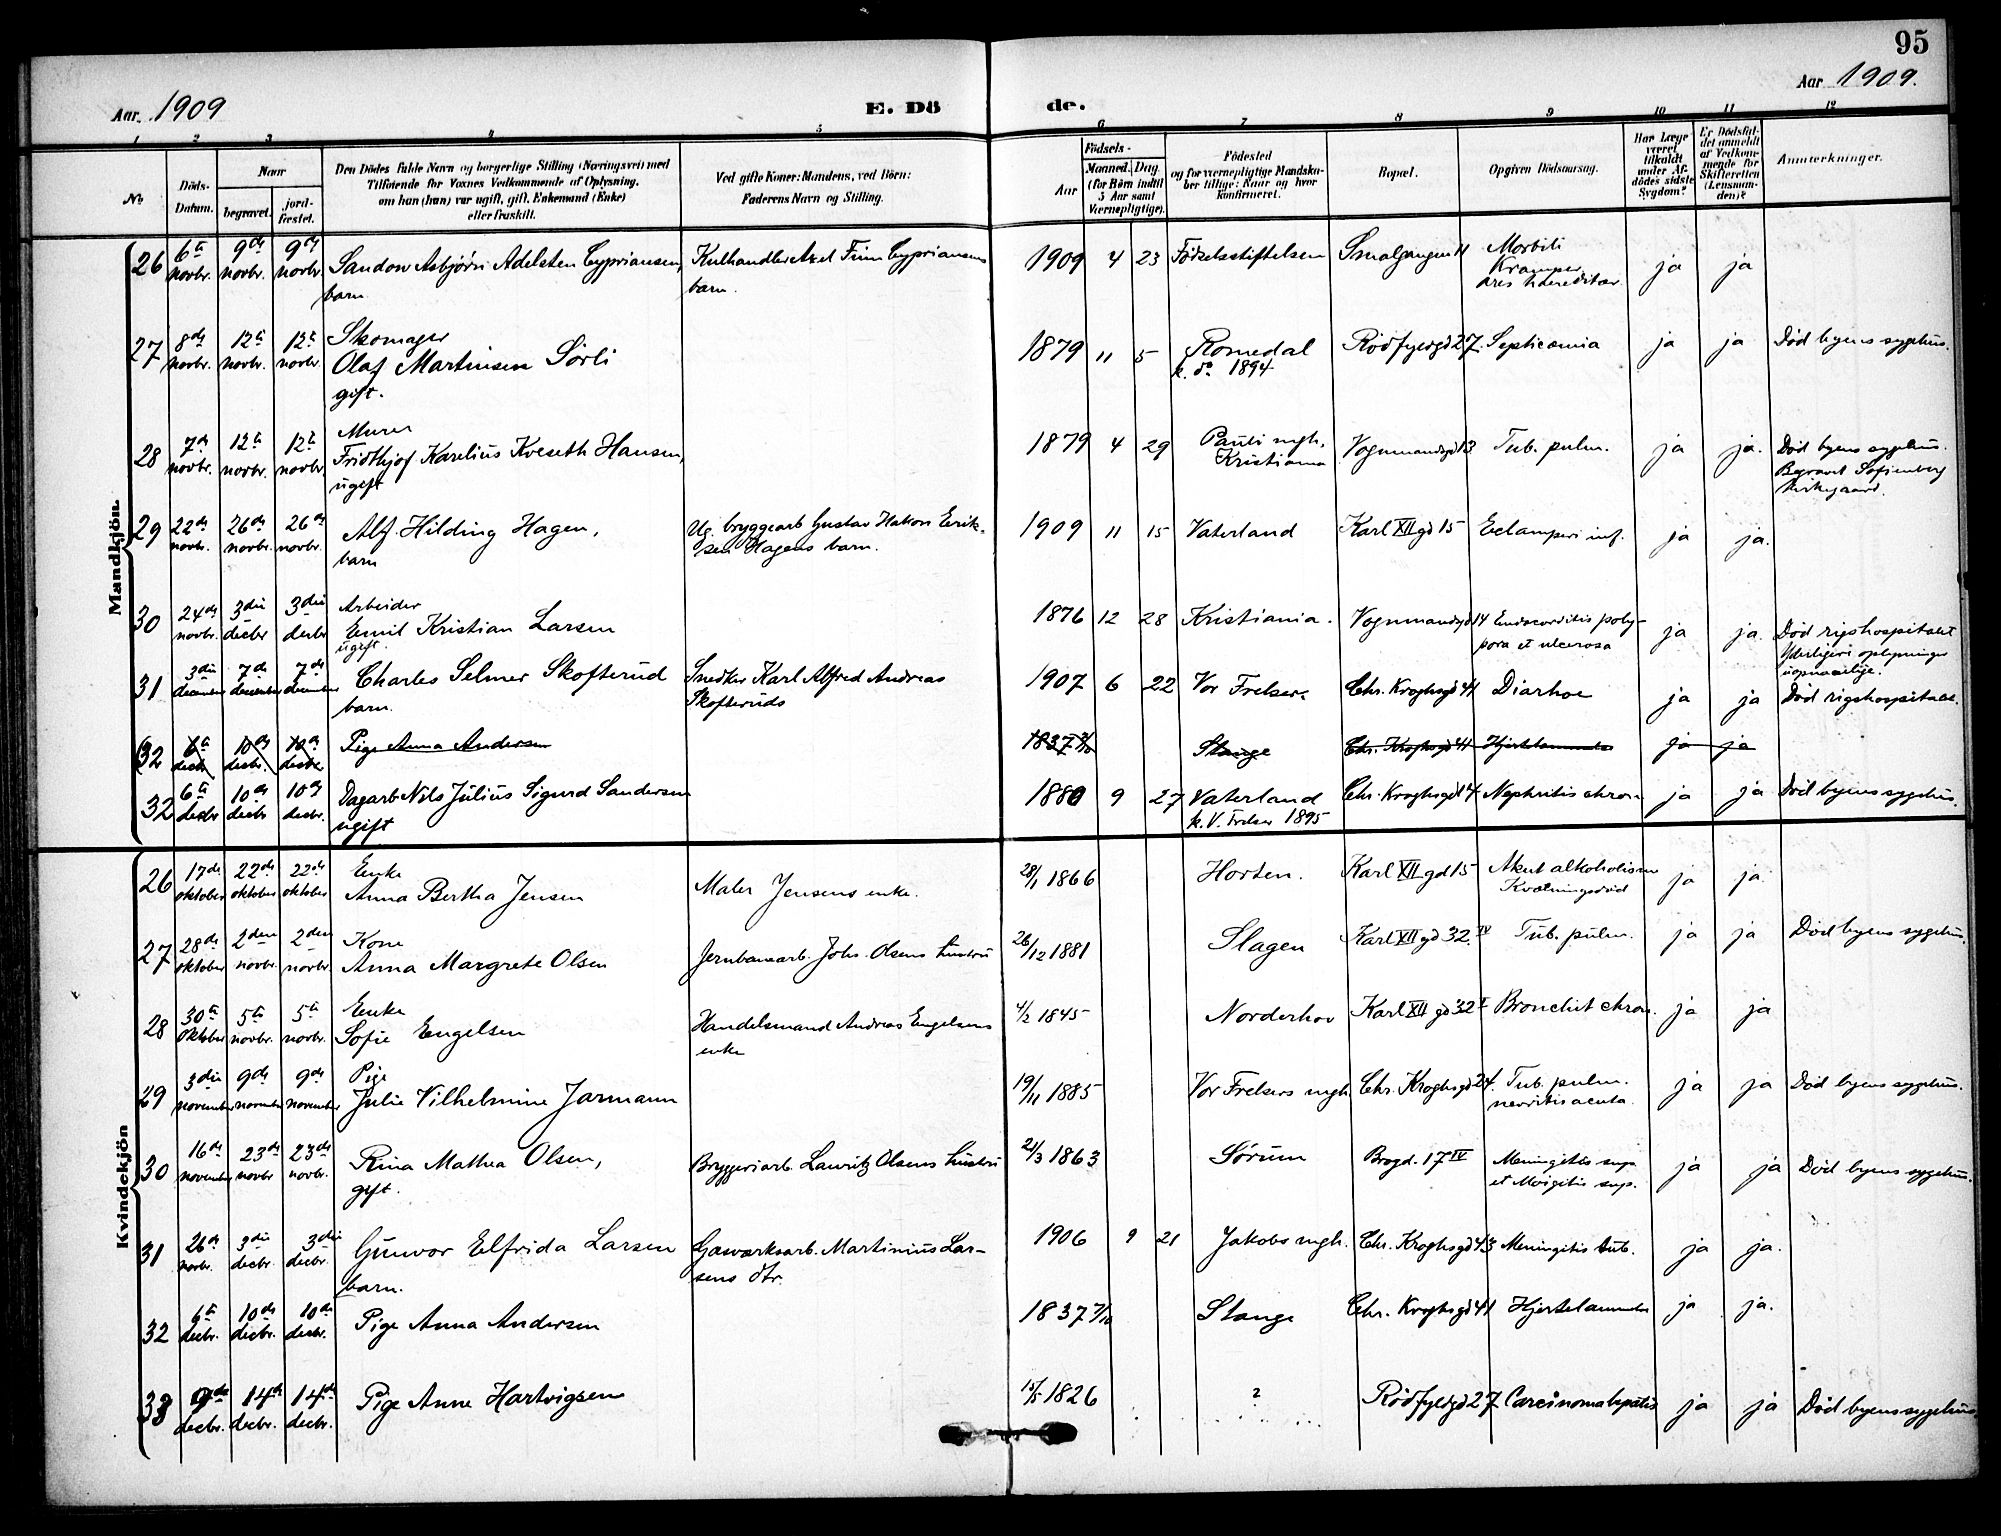 95
Aar 1909
E. Dö
de.
Aar 1909.
1 2 3 4 5 6 7 8 9 10 11 12
No
Döds-Datum.
Naar
begravet.
jord-fæstet.
Den Dödes fulde Navn og borgerlige Stilling (Næringsvei) med
Tilföiende for Voxnes Vedkommende af Oplysning,
om han (hun) var ugift, gift, Enkemand (Enke)
eller fraskilt.
Ved gifte Koner: Mandens, ved Börn:
Faderens Navn og Stilling.
Födsels-
Aar
Maaned. Dag.
(for Börn indtil
5 Aar samt
Værnepligtige).
Födested
og for værnepligtige Mandska-
ber tillige: Naar og hvor
konfirmeret.
Bopæl.
Opgiven Dödsaarsag.
Har Læge
været
tilkaldt
under Af-
dödes sidste
Sygdom?
Er Dödsfal-
det anmeldt
af Vedkom-
mende for
Skifteretten
(Lensman-
den)?
Anmerkninger.
Mandkjön.
26 6te novbr. 9de novbr. 9de novbr. Sandow Asbjørn Adelsten Cypriansen, Kulhandler Axel Finn Cypriansens 1909 4 23 Fødselsstiftelsen Smalgangen 11 Morbili
barn barn. Kramper
hereditær ja ja
27 8de novbr. 12te novbr. 12te novbr. Skomager
Olaf Martinsen Sörli 1879 11 5 Romedal Rødfyldgd 27. Septicæmia ja ja Død byens sygehus.
gift. k. do 1894
28 7de novbr. 12te novbr. 12te novbr. Murer
Fridthjof Karelius Kveseth Hansen, 1879 4 29 Pauli mgh. Vognmandsgd 13 Tub. pulm. ja ja. Død byens sygehus.
ugift Kristiania Begravet Sofienberg
kirkegaard.
29 22de novbr. 26de novbr. 26de novbr. Alf Hilding Hagen, Ug. bryggearb Gustav Hakon Erik- 1909 11 15 Vaterland Karl XII gd 15 Eclampsi inf. ja ja.
barn sen Hagens barn.
30 24de novbr. 3die decbr 3die decbr Arbeider
Emil Kristian Larsen 1876 12 28 Kristiania. Vognmandsgd 14 Endocarditis poly- ja ja. Død rigshospitalet
ugift. pora et ulcerosa Yderligere oplysninger
uopnaaelige.
31 3die december 7de december 7de december Charles Selmer Skofterud Snedker Karl Alfred Andreas 1907 6 22 Vor Frelsers Chr. Kroghsgd 41 Diarhoe ja ja Død rigshospitalet.
barn. Skofteruds
(32 6te decbr 10de decbr. 10de decbr Pige Anna Andersen 1837 7/10 Stange Chr. Kroghsgd 41 Hjertelammelse ja ja
32 6te decbr 10de decbr 10de decbr. Dagarb Nils Julius Sigurd Sandersen 1880 9 27 Vaterland Chr. Kroghsgd 14 Nephritis chron ja ja Død byens sygehus.
ugift k. V. Frelser 1895
Kvindekjön
26 17de oktober 22de oktober 22de oktober Enke
Anna Bertha Jensen Maler Jensens enke. 28/1 1866 Horten. Karl XII gd 15 Akut alkoholisme ja ja.
Kvælningsdød
27 28de oktober 2den novbr. 2den novbr. Kone
Anna Margrete Olsen Jernbanearb. Johs. Olsens hustru 26/12 1881 Slagen Karl XII gd 32. IV Tub. pulm. ja ja Død byens sygehus.
28 30te oktober 5te novbr. 5te novbr. Enke
Sofie Engelsen Handelsmand Andreas Engelsens 4/2 1845 Norderhov Karl XII gd 32 I Bronchit chron. ja ja
enke
29 3die november 9de november 9de november Pige
Julie Vilhelmine Jarmann 19/11 1885 Vor Frelsers mgh. Chr. Kroghsgd 24. Tub. pulm. ja ja Død byens sygehus.
nevritis acuta.
30 16de november 23de novbr 23de novbr. Rina Mathea Olsen, Bryggeriarb. Lauritz Olsens hustru 21/3 1863 Sørum Brogd. 17 IV Meningitis sup. ja ja Død byens sygehus.
gift. et sup.
31 26de novbr. 3die decbr. 3die decbr. Gunvor Elfrida Larsen Gasværksarb. Martinius Lar- 1906 9 21 Jakobs mgh. Chr. Kroghsgd 43 Meningitis tub. ja ja.
barn. sens dtr.
32 6te decbr. 10de decbr. 10de decbr. Pige Anna Andersen 1837 7/10 Stange Chr. Kroghsgd 41 Hjertelammelse ja ja.
33 9de decbr. 14de decbr. 14de decbr. Pige Anne Hartvigsen 15/5 1826 ? Rødfyldgd 27 Carcinoma hepatis ja ja Død byens sygehus.